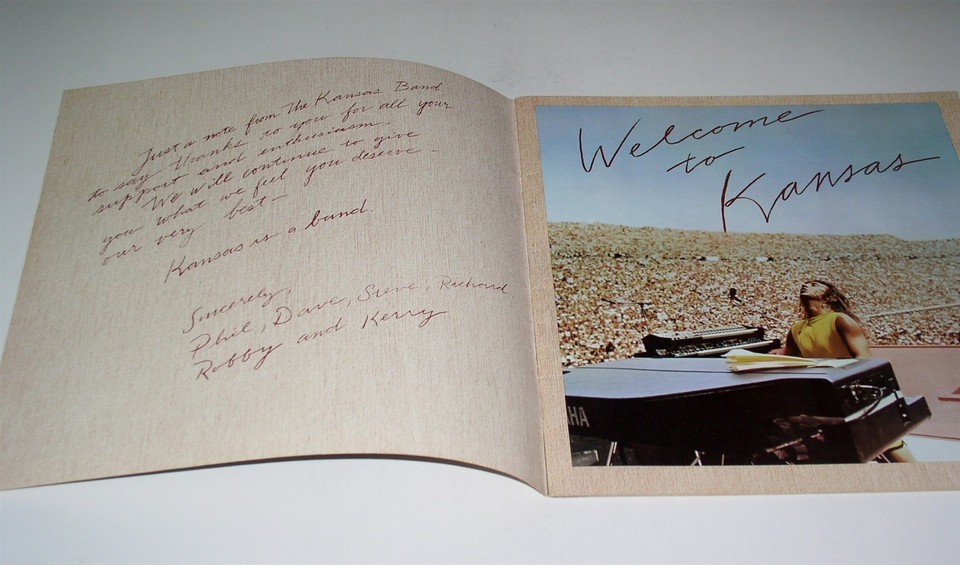 Just a note from The Kansas Band
to say thanks to you for all your
support and enthusiasm.
We will continue to give
you what we feel you deserve -
our very best -
Kansas is a band.
Sincerely,
Phil, Dave, Steve, Richard,
Robby and Kerry
Welcome
to
Kansas
AHA